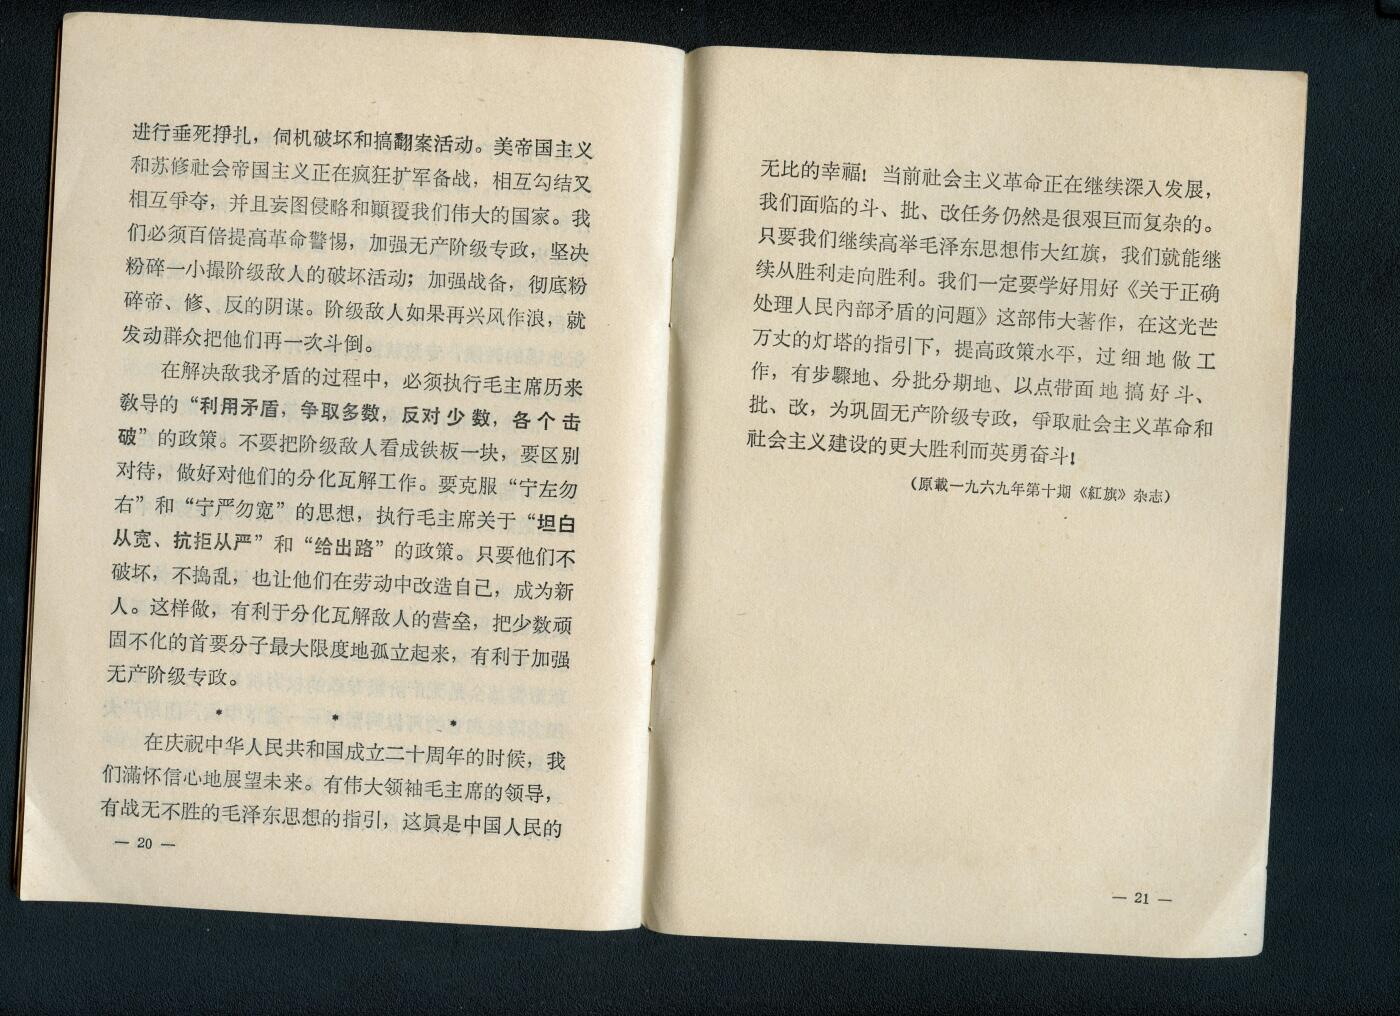 进行垂死掙扎，伺机破坏和搞翻案活动。美帝国主义
和苏修社会帝国主义正在疯狂扩军备战，相互勾结又
相互爭夺，并且妄图侵略和顚覆我们伟大的国家。我
们必须百倍提高革命警惕，加强无产阶级专政，坚决
粉碎一小撮阶级敌人的破坏活动；加强战备，彻底粉
碎帝、修、反的阴谋。阶级敌人如果再兴风作浪，就
发动群众把他们再一次斗倒。
在解决敌我矛盾的过程中，必须执行毛主席历来
敎导的“利用矛盾，争取多数，反对少数，各个击
破”的政策。不要把阶级敌人看成铁板一块，要区别
对待，做好对他们的分化瓦解工作。要克服“宁左勿
右”和“宁严勿宽”的思想，执行毛主席关于“坦白
从宽、抗拒从严”和“给出路”的政策。只要他们不
破坏，不捣乱，也让他们在劳动中改造自己，成为新
人。这样做，有利于分化瓦解敌人的营垒，把少数顽
固不化的首要分子最大限度地孤立起来，有利于加强
无产阶级专政。
* * *
在庆祝中华人民共和国成立二十周年的时候，我
们滿怀信心地展望未来。有伟大领袖毛主席的领导，
有战无不胜的毛泽东思想的指引，这眞是中国人民的
— 20 —
无比的幸福！当前社会主义革命正在继续深入发展，
我们面临的斗、批、改任务仍然是很艰巨而复杂的。
只要我们继续高举毛泽东思想伟大红旗，我们就能继
续从胜利走向胜利。我们一定要学好用好《关于正确
处理人民內部矛盾的问题》这部伟大著作，在这光芒
万丈的灯塔的指引下，提高政策水平，过细地做工
作，有步驟地、分批分期地、以点带面地搞好斗、
批、改，为巩固无产阶级专政，爭取社会主义革命和
社会主义建设的更大胜利而英勇奋斗！
（原載一九六九年第十期《紅旗》杂志）
— 21 —